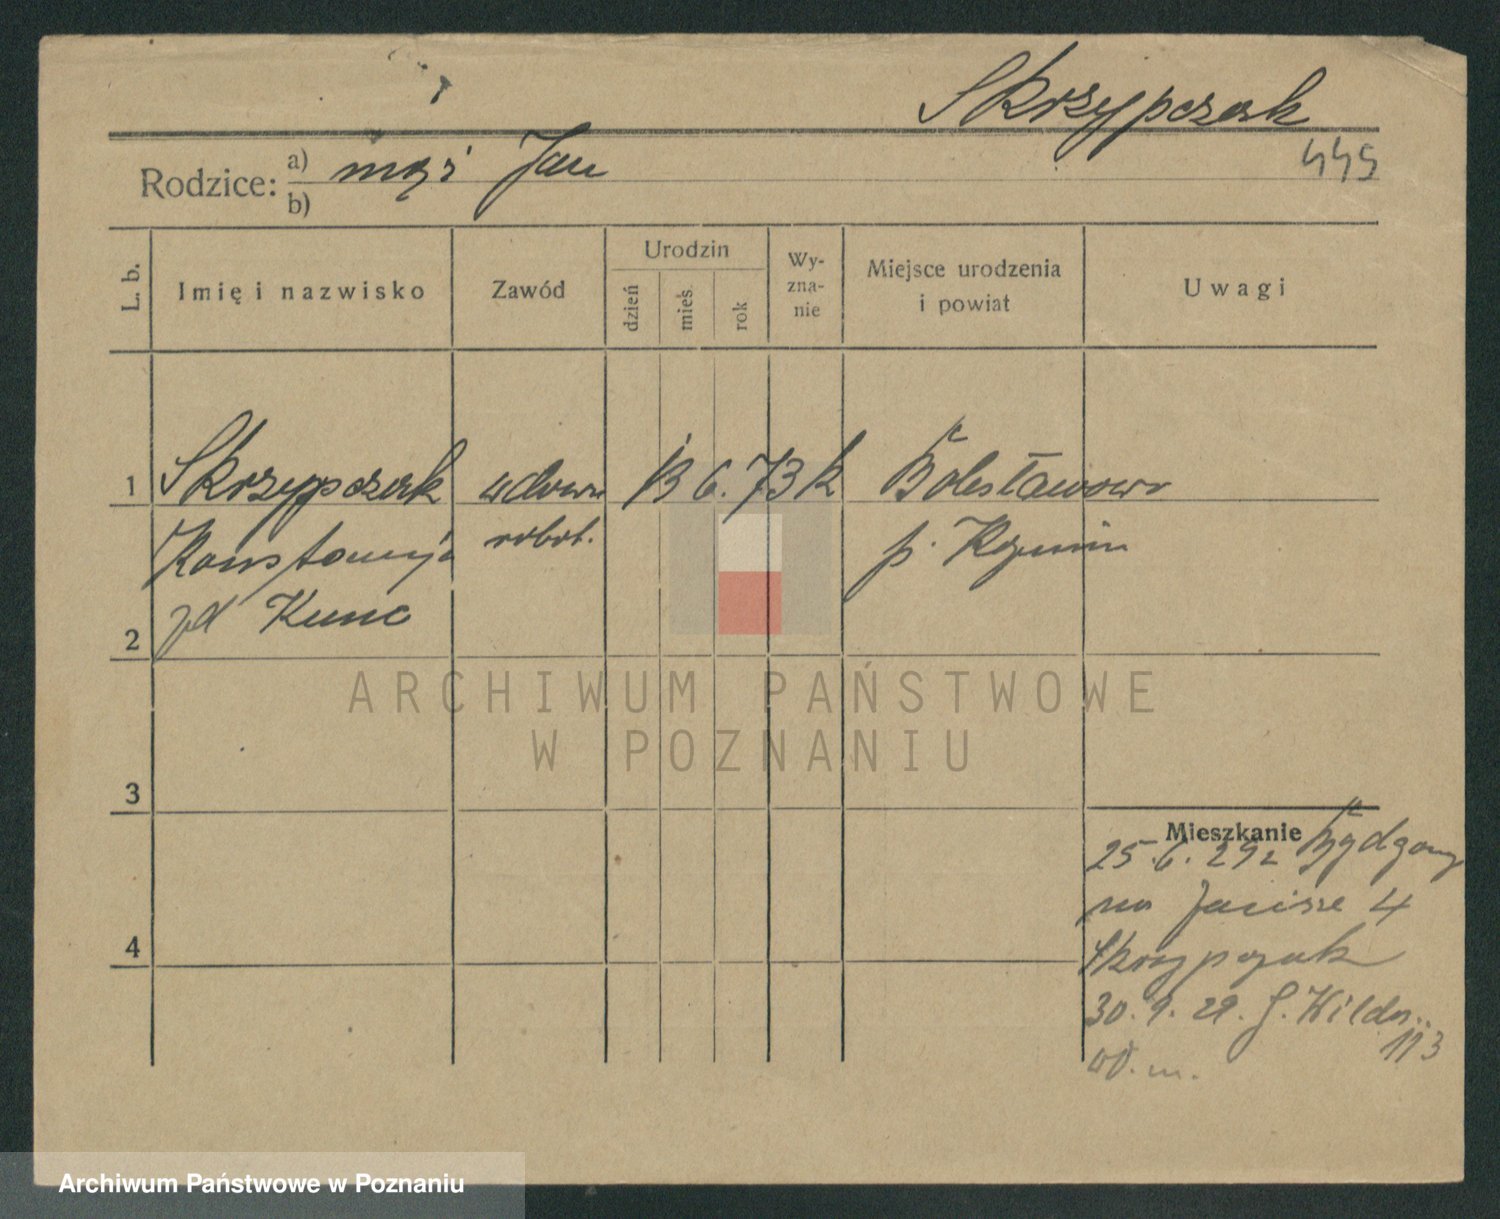 Skrzypczak
445
Rodzice: a) mąż Jan
b)
L. b.
Imię i nazwisko
Zawód
Urodzin
dzień
mieś.
rok
Wy-
zna-
nie
Miejsce urodzenia
i powiat
Uwagi
1 Skrzypczak wdowa 13 6. 73 k Bolesławowo
Konstancja robot. p.
zd Kunc
2
3
4
Mieszkanie
25.6.29 z Bydgoszcz
na 4
Skrzypczak
30.9.29. G. Wilda
113
ARCHIWUM PAŃSTWOWE
W POZNANIU
Archiwum Państwowe w Poznaniu